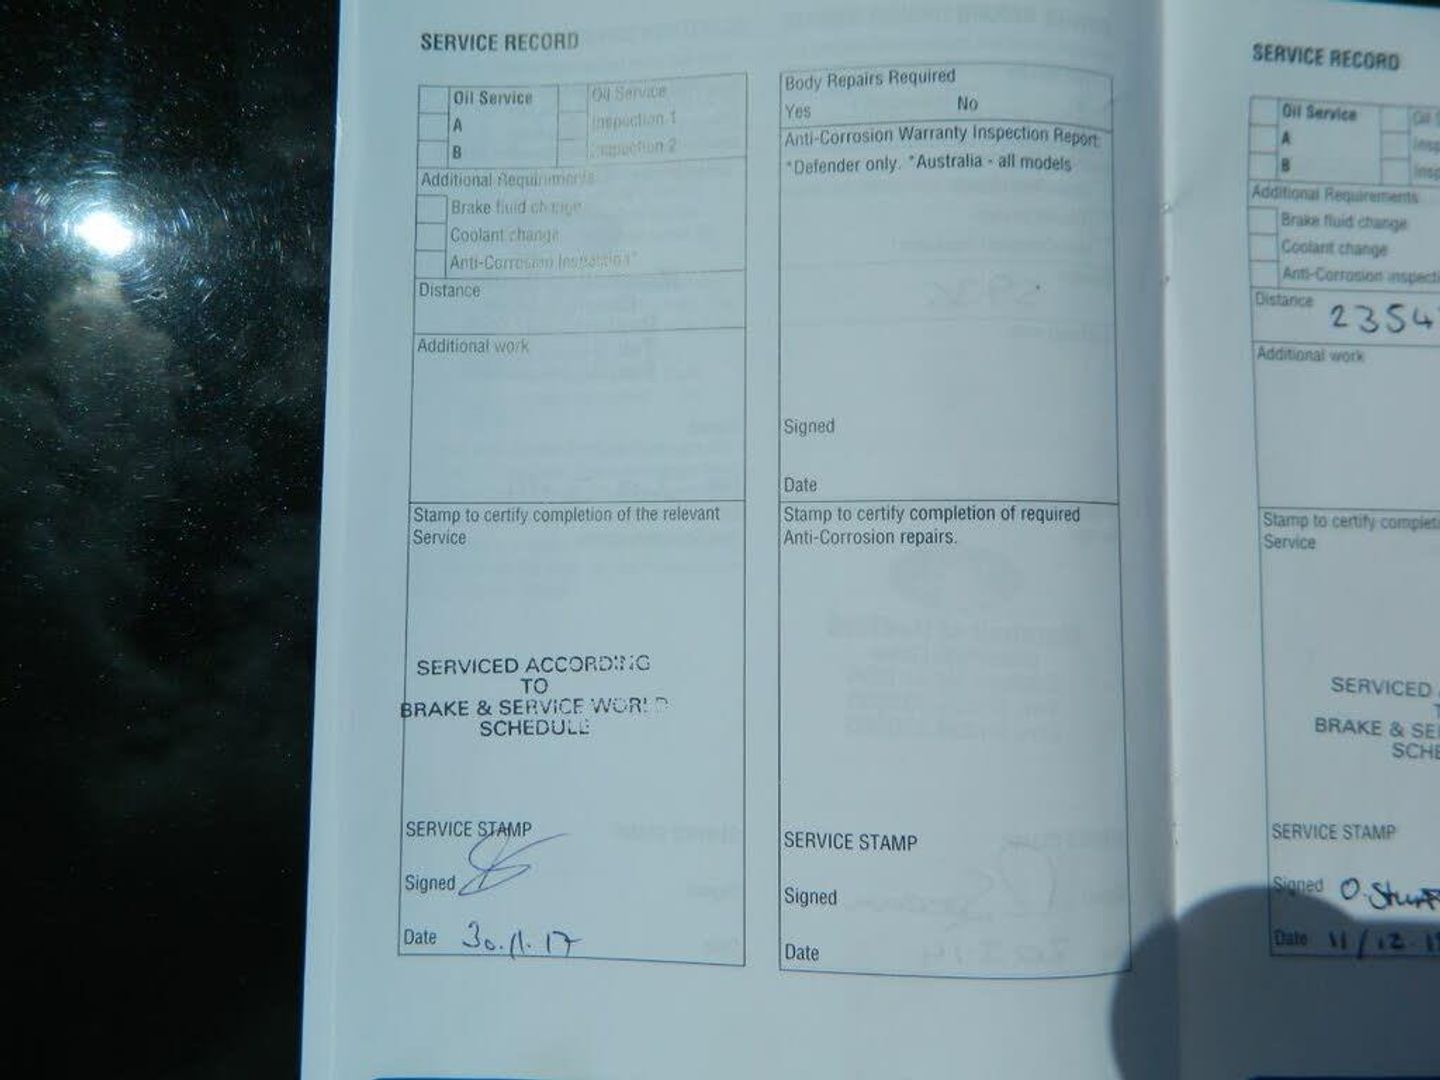 SERVICE RECORD
Oil Service
Oil Service
A
Inspection 1
B
Inspection 2
Additional Requirements
Brake fluid change
Coolant change
Anti-Corrosion Inspection*
Distance
Additional work
Stamp to certify completion of the relevant
Service
SERVICED ACCORDING
TO
BRAKE & SERVICE WORLD
SCHEDULE
SERVICE STAMP
Signed
Date 30.11.17
Body Repairs Required
Yes No
Anti-Corrosion Warranty Inspection Report
*Defender only. *Australia - all models
Signed
Date
Stamp to certify completion of required
Anti-Corrosion repairs.
SERVICE STAMP
Signed
Date
SERVICE RECORD
Oil Service
A
B
Additional Requirements
Brake fluid change
Coolant change
Anti-Corrosion inspecti
Distance 2354
Additional work
Stamp to certify complet
Service
SERVICED
BRAKE & SE
SCHE
SERVICE STAMP
Signed O.
Date 11/12.1